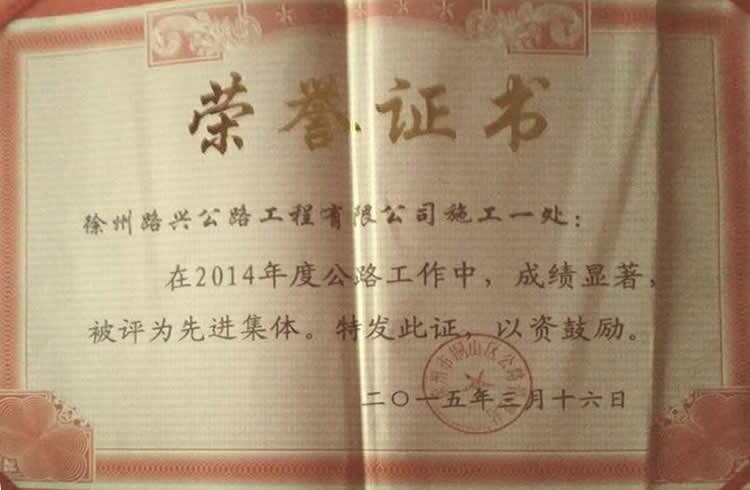 荣誉证书
徐州路兴公路工程有限公司施工一处：
在2014年度公路工作中，成绩显著，
被评为先进集体。特发此证，以资鼓励。
二〇一五年三月十六日
州市铜山区公路